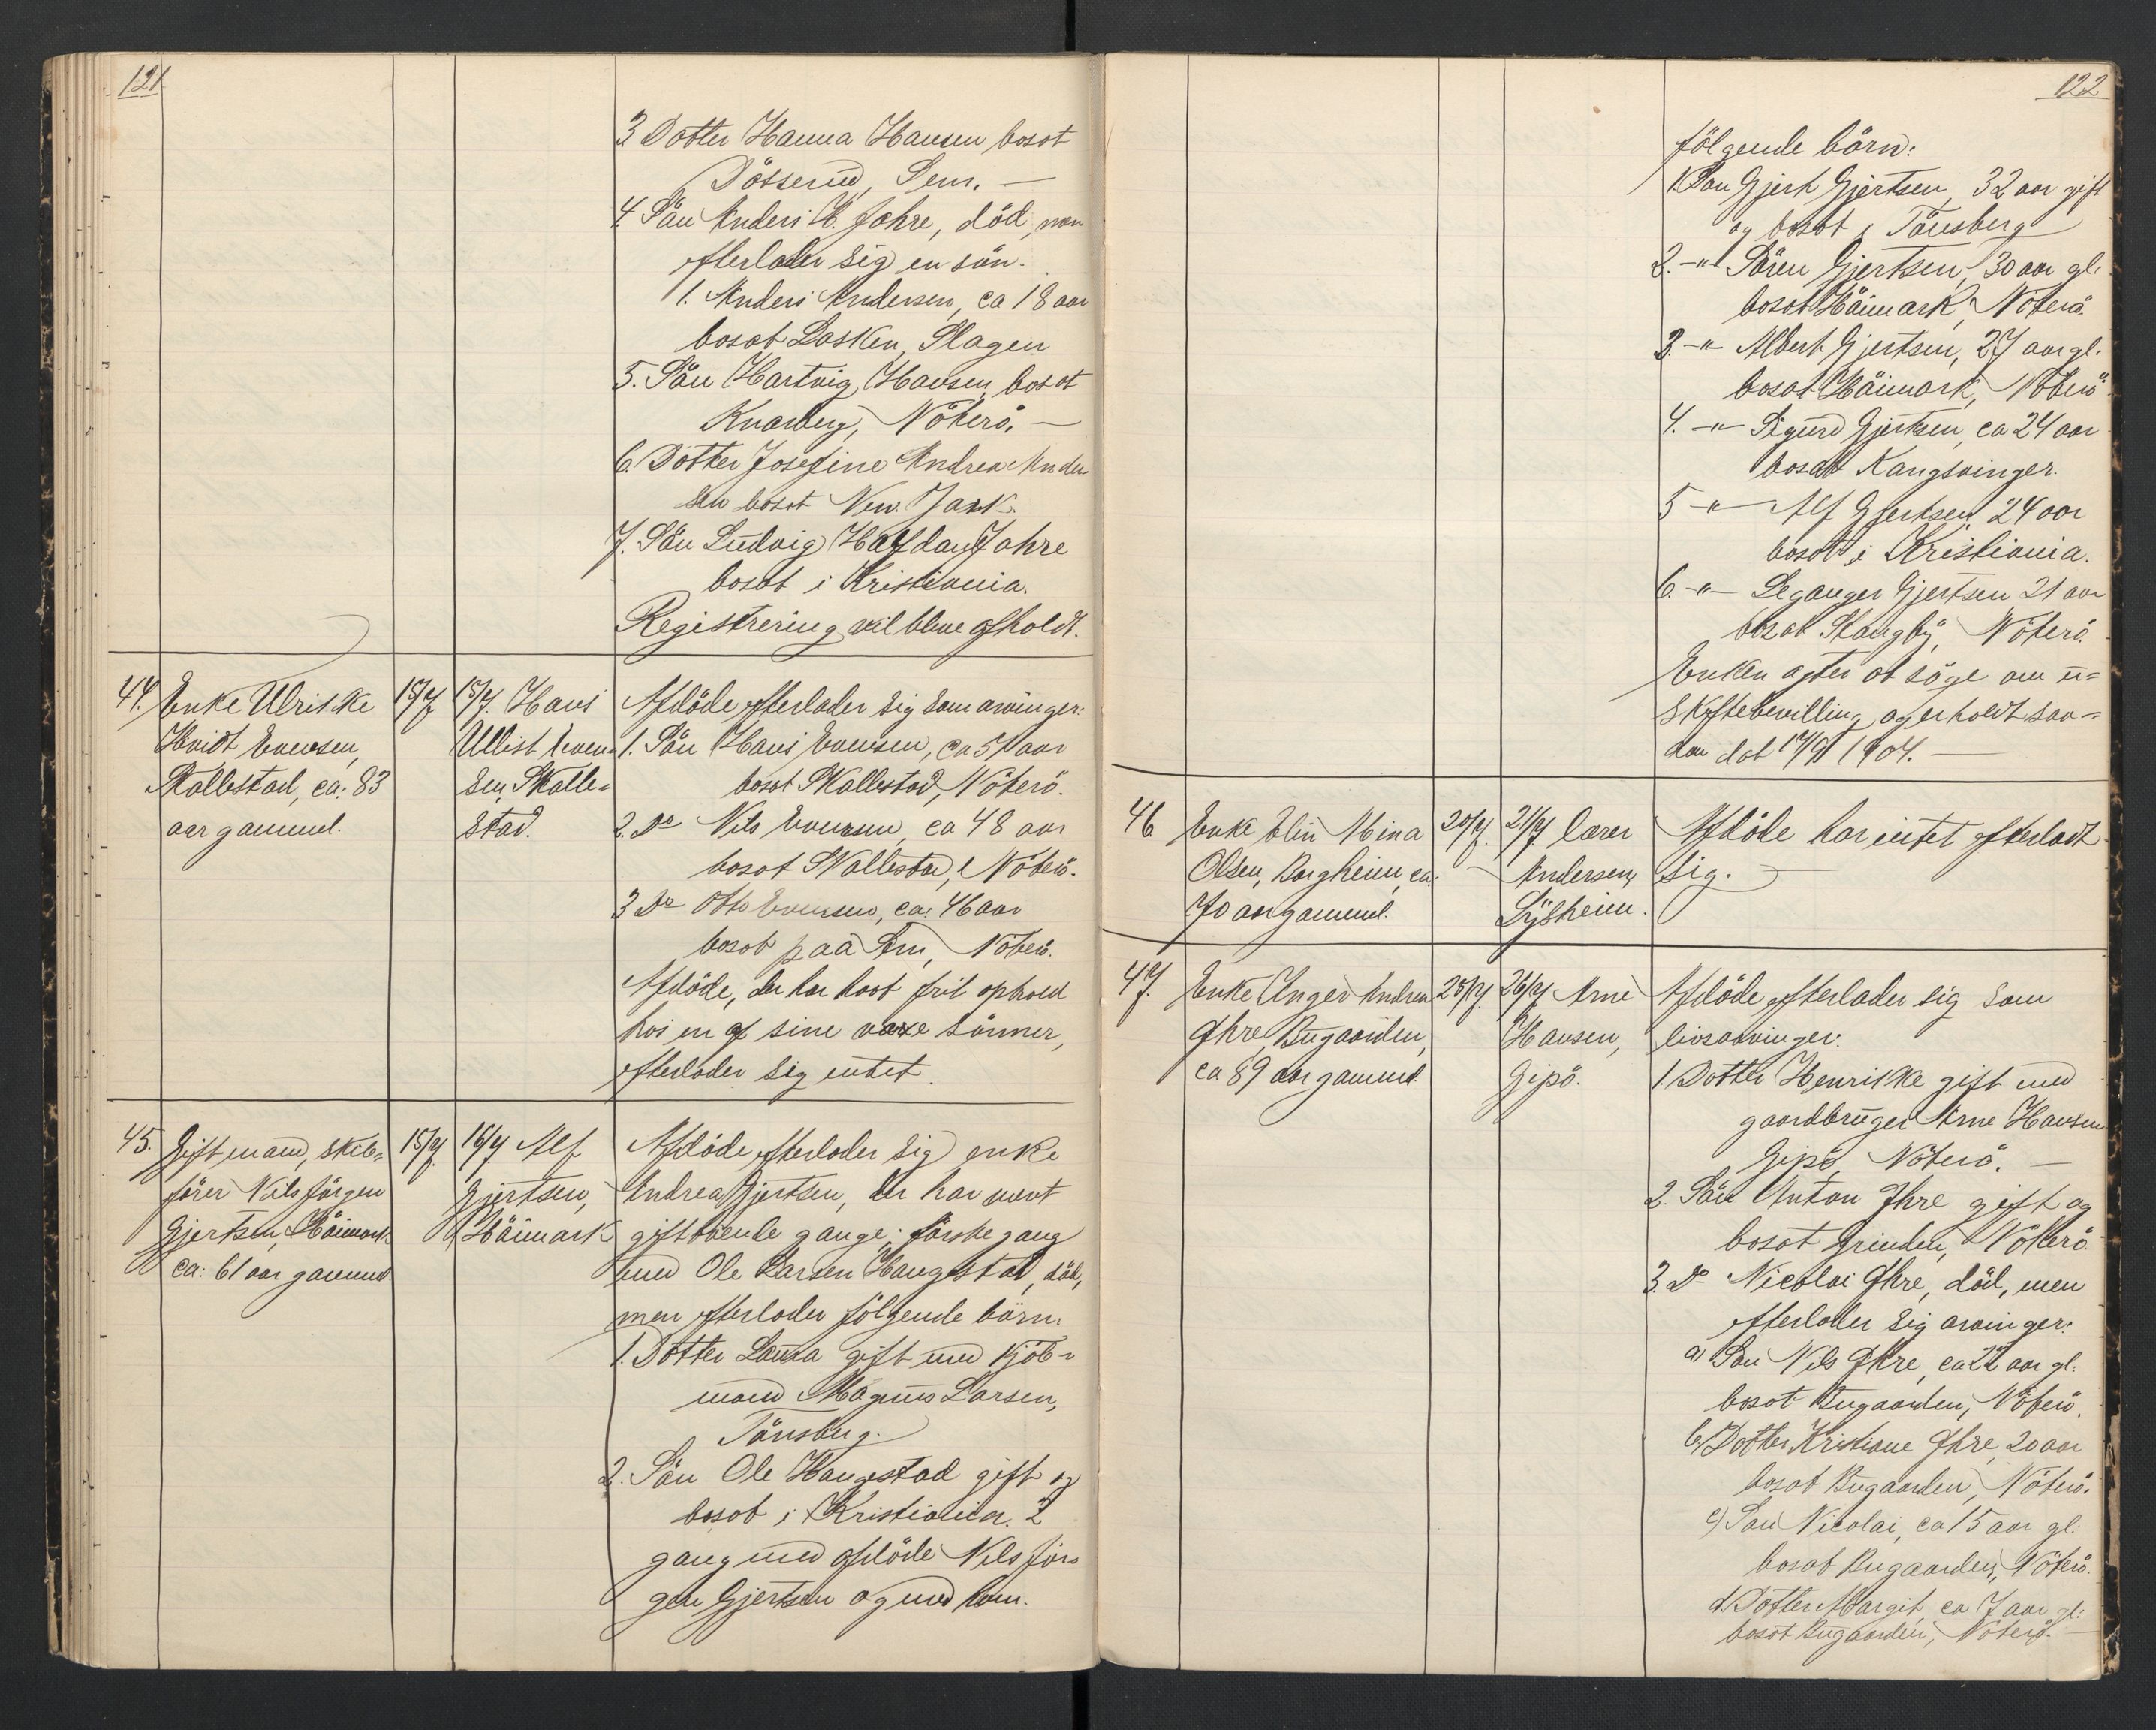 121
3 Dotter Hanna Hansen bosat
Dösserud, Sem. —
4. Sön Anders H. Jahre, död, men
efterlader sig en sön.
1. Anders Andersen, ca 18 aar
bosat Basken, Slagen
5. Sön Hartvig Hansen bosat
Knarberg, Nöterö. —
6. Dotter Josefine Andrea Ander
sen bosat New. York.
7. Sön Ludvig Halfdan Jahre
bosat i Kristiania.
Registrering vil blive afholdt.
44.
Enke Ulrikke
Hvidt Evensen,
Skallestad, ca: 83
aar gammel.
15/7
15/7. Hans
Ullist Even
sen, Skalle=
stad.
Afdöde efterlader sig som arvinger:
1. Sön Hans Evensen, ca 51 aar
bosat Skallestad, Nöterö.
2. Do Nils Evensen, ca 48 aar
bosat Skallestad, Nöterö.
3 Do Otto Evensen, ca: 46 aar
bosat paa Nöterö.
Afdöde, der har havt frit ophold
hos en af sine voxne sönner,
efterlader sig intet.
45.
Gift mand, skibs=
förer Nils Jörgen
Gjertsen, Häimark
ca: 61 aar gammel
15/7
16/7 Alf
Gjertsen,
Häimark
Afdöde efterlader sig enke
Andrea Gjertsen, der har vært
gift tvende gange; förste gang
med Ole Larsen Haugestad, död,
men efterlader fölgende börn:
1. Dotter Laura gift med Kjöb=
mand Magnus Larsen,
Tönsberg.
2. Sön Ole Haugestad gift og
bosat i Kristiania. 2
gang med afdöde Nils Jör=
gen Gjertsen og med ham.
122
fölgende börn:
1. Sön Gjert Gjertsen, 32 aar gift
og bosat i Tönsberg
2. -"- Sören Gjertsen, 30 aar gl.
bosat Häimark, Nöterö.
3. -"- Albert Gjertsen, 27 aar gl.
bosat Häimark, Nöterö.
4. -"- Sigurd Gjertsen, ca 24 aar
bosat Kongsvinger.
5 -"- Alf Gjertsen, 24 aar
bosat i Kristiania.
6. -"- Leganger Gjertsen 21 aar
bosat Skangby, Nöterö.
Enken agter at söge om u=
skiftebevilling, og erholdt saa=
dan dat 1904. —
46
Enke Elin Mina
Olsen, Borgheim, ca:
70 aar gammel.
20/7.
21/7 lærer
Andersen,
Solheim.
Afdöde har intet efterladt
sig. —
47.
Enke Inger Andrea
Ihre, Bugaarden,
ca 89 aar gammel.
25/7.
26/7 Arne
Hansen,
Gipö.
Afdöde efterlader sig som
livsarvinger:
1 Dotter Henrikke gift med
gaardbruger Arne Hansen
Gipö, Nöterö. —
2. Sön Anton Ihre gift og
bosat Grinden, Nöterö.
3. Do Nicolai Ihre, död, men
efterlader sig arvinger:
a) Sön Nils Ihre, ca 22 aar gl.
bosat Bugaarden, Nöterö.
b) Dotter Kristiane Ihre, 20 aar
bosat Bugaarden, Nöterö.
c) Sön Nicolai, ca 15 aar gl.
bosat Bugaarden, Nöterö.
d) Dotter Margit, ca 7 aar gl.
bosat Bugaarden, Nöterö. —